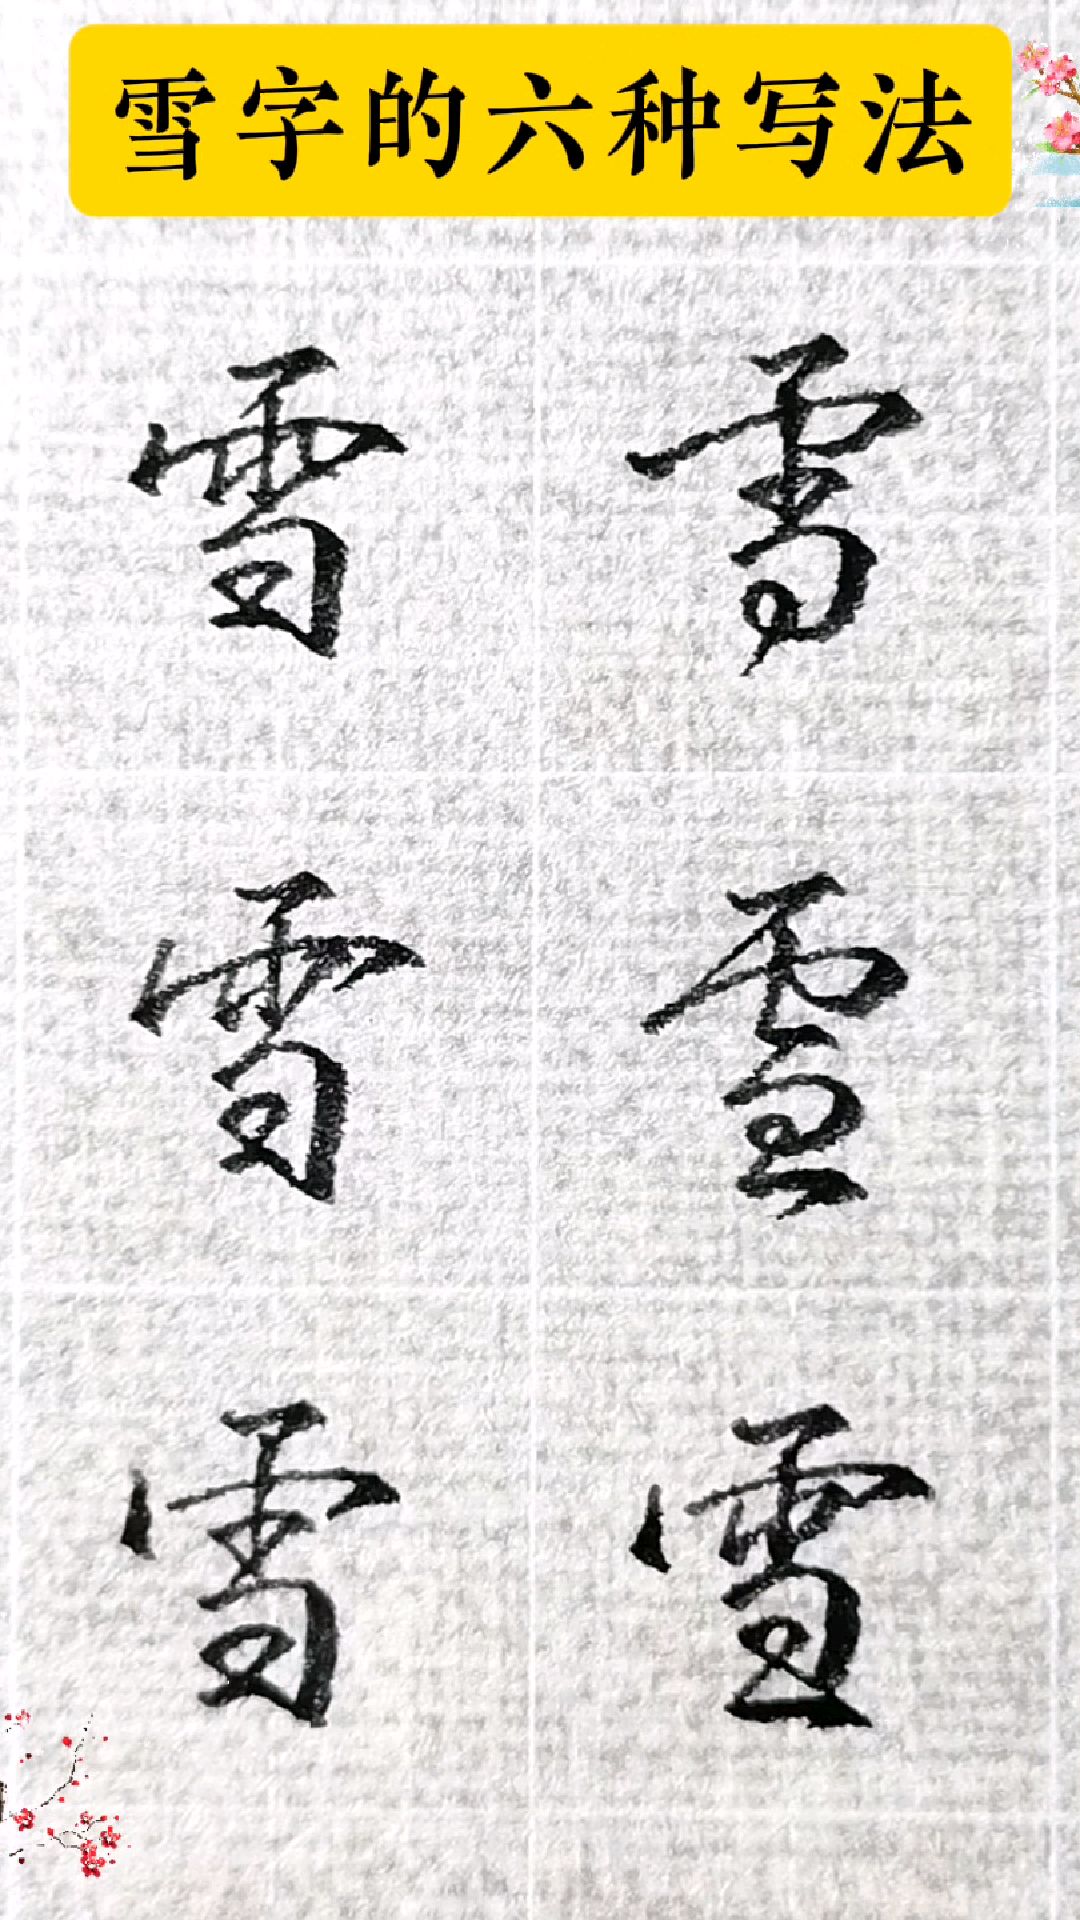 雪字的六种写法
雪 雪
雪 雪
雪 雪